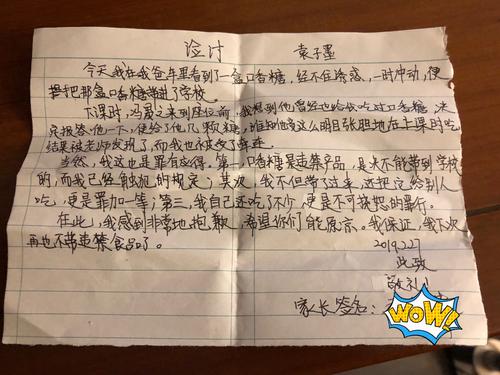 检讨 袁子墨
今天我在我爸车里看到了一盒口香糖,经不住诱惑,一时冲动,便
把那盒口香糖带进了学校。
下课时,冯晨之来到座位前,我想到他曾经也给我吃过口香糖,决
定报答他一下,便给了他几颗糖,谁知他这么明目张胆地在上课时吃
结果被老师发现了,而我也不被
当然,我这也是罪有应得。第一,口香糖是违禁产品,是决不能带到学校
的,而我已经触犯的规定;其次,我不但带了过来,还把它给别人
吃,更是罪加一等;第三,我自己还吃了不少,更是不可饶恕的罪行。
在此,我感到非常地抱歉,希望你们能原谅。我保证,我下次
再也不带违禁食品了。
2019.2.27
此致
敬礼!
家长签名:
WOW!